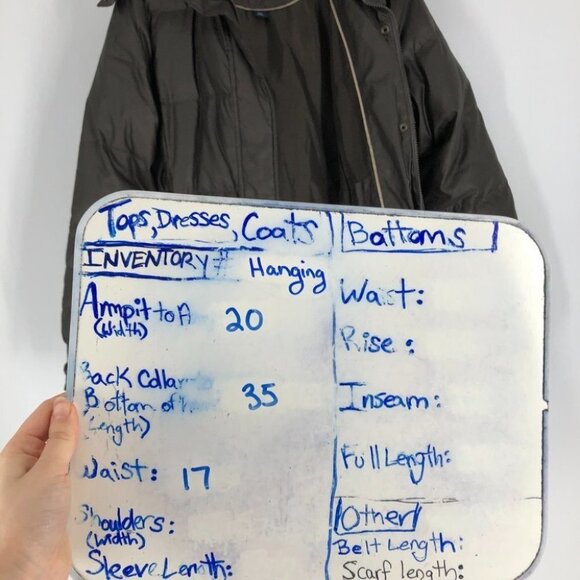 Tops, Dresses, Coats
INVENTORY # Hanging
Armpit to A 20
(Width)
Back Colla 35
Bottom of
Length)
Waist: 17
Shoulders:
(Width)
Sleeve Length:
Bottoms
Waist:
Rise:
Inseam:
Full Length:
Other
Belt Length:
Scarf length: